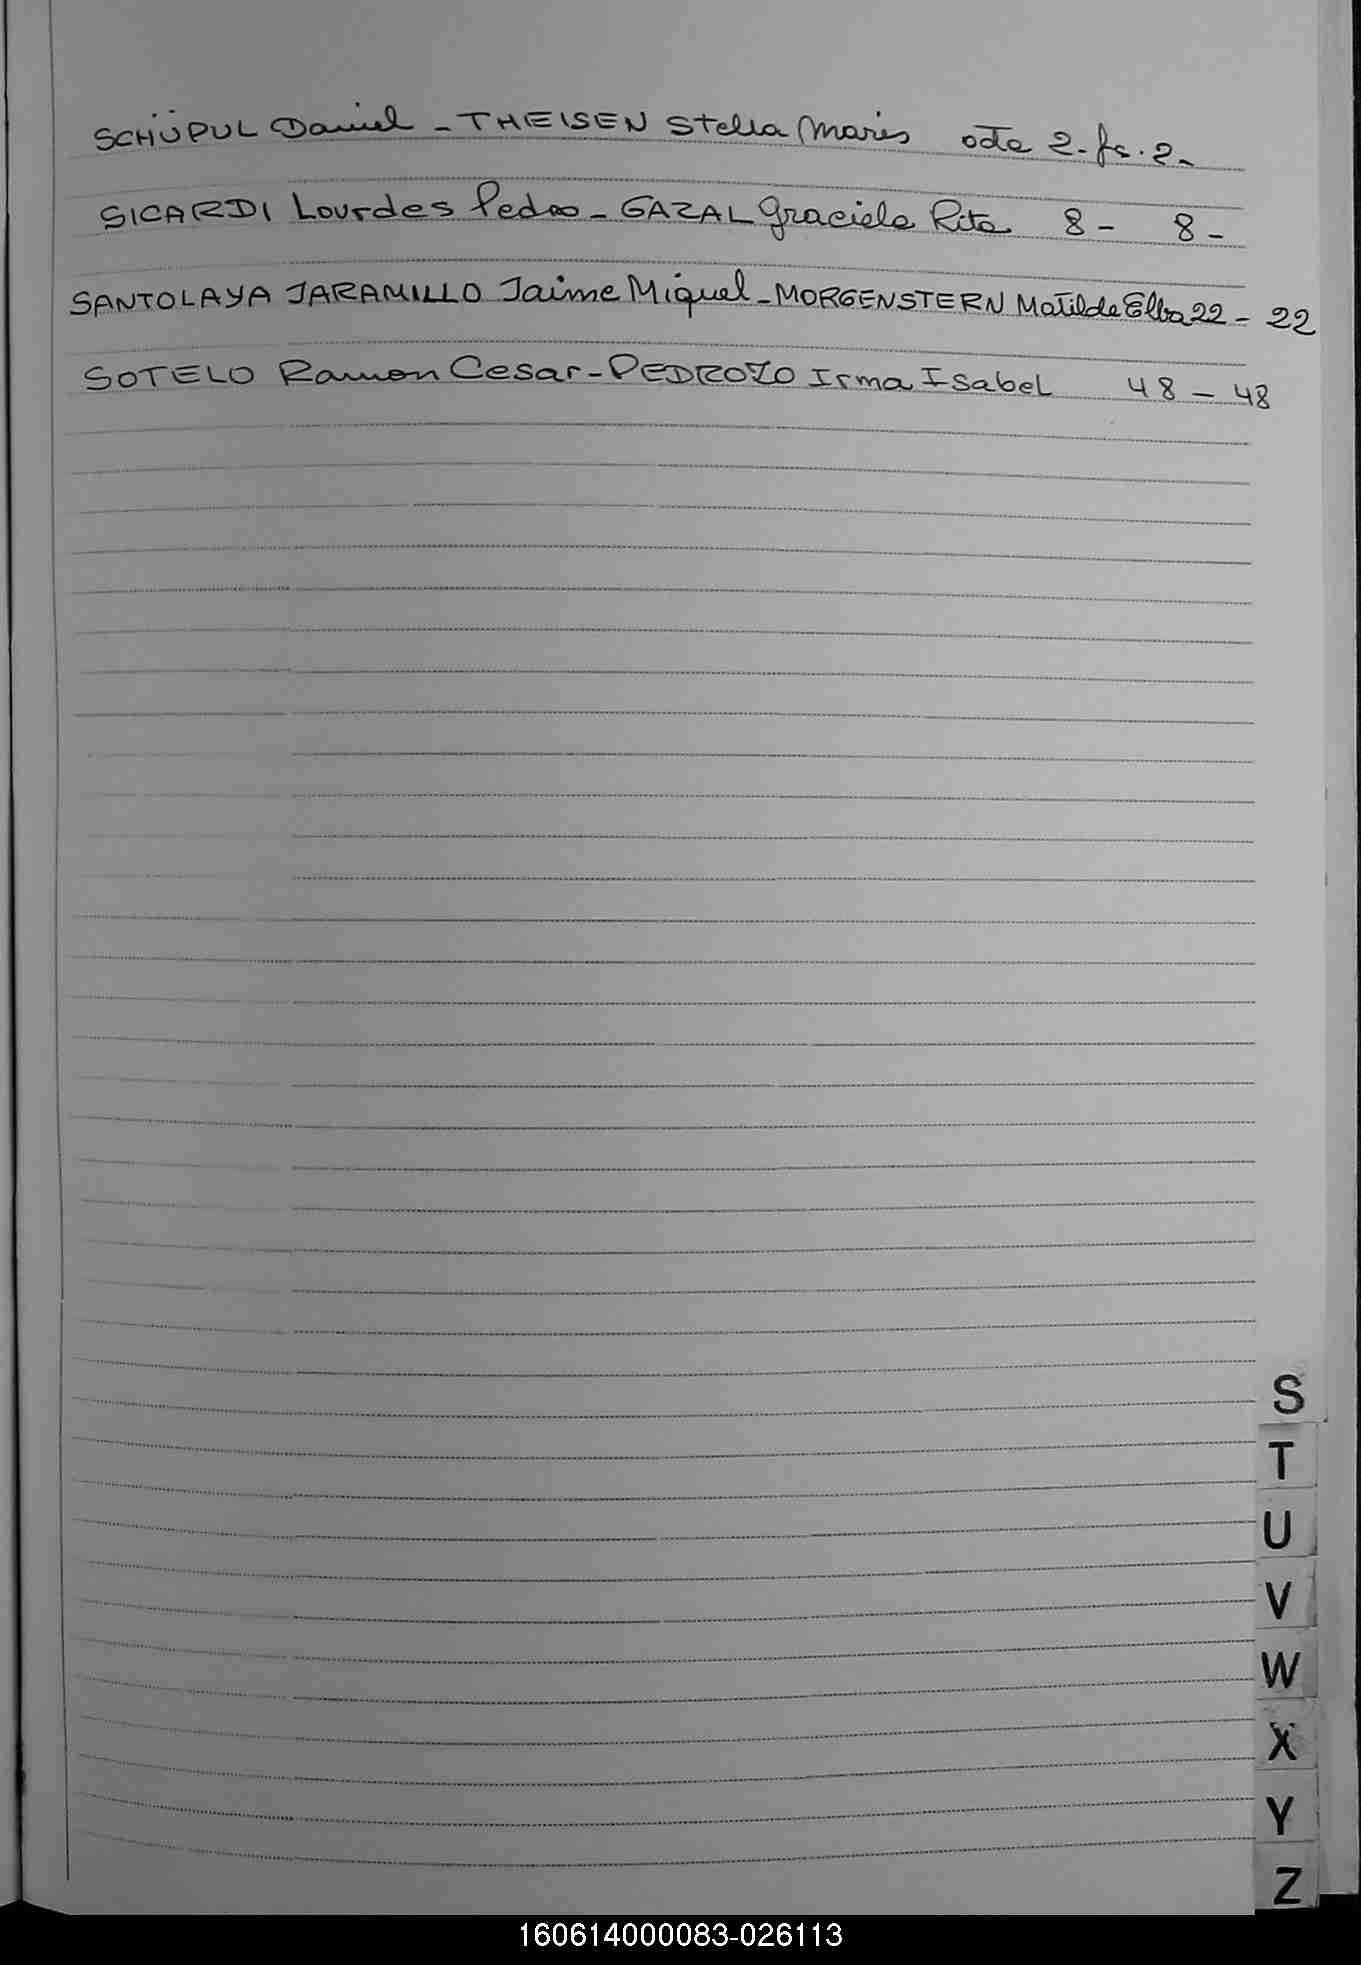 SCHÜPUL Daniel - THEISEN Stella Maris acta 2. fs. 2-
SICARDI Lourdes Pedro - GAZAL Graciela Rita 8 - 8 -
SANTOLAYA JARAMILLO Jaime Miguel - MORGENSTERN Matilde Elba 22 - 22
SOTELO Ramon Cesar - PEDROZO Irma Isabel 48 - 48
S
T
U
V
W
X
Y
Z
160614000083-026113